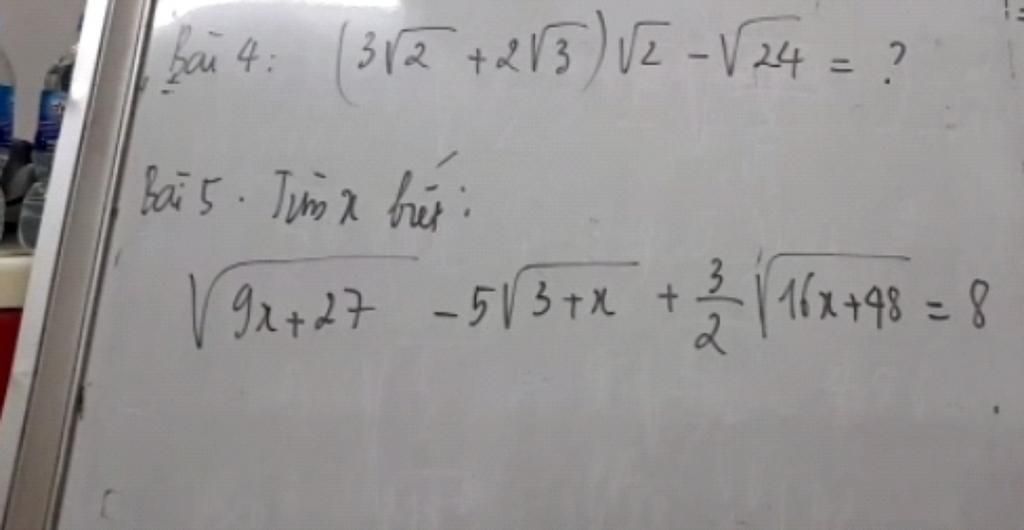 Bài 4: (3√2 + 2√3)√2 - √24 = ?
Bài 5. Tìm x biết:
√(9x+27) - 5√(3+x) + 3/2 √(16x+48) = 8